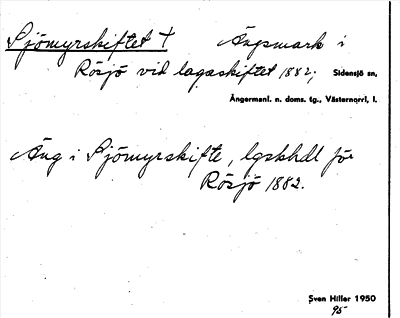 Sjömyrskiftet † Ängsmark i
Rösjö vid lagaskiftet 1882; Sidensjö sn,
Ångermanl. n. doms. tg., Västernorrl. l.
Äng i Sjömyrskifte, lgskhdl för
Rösjö 1882.
Sven Hiller 1950
95